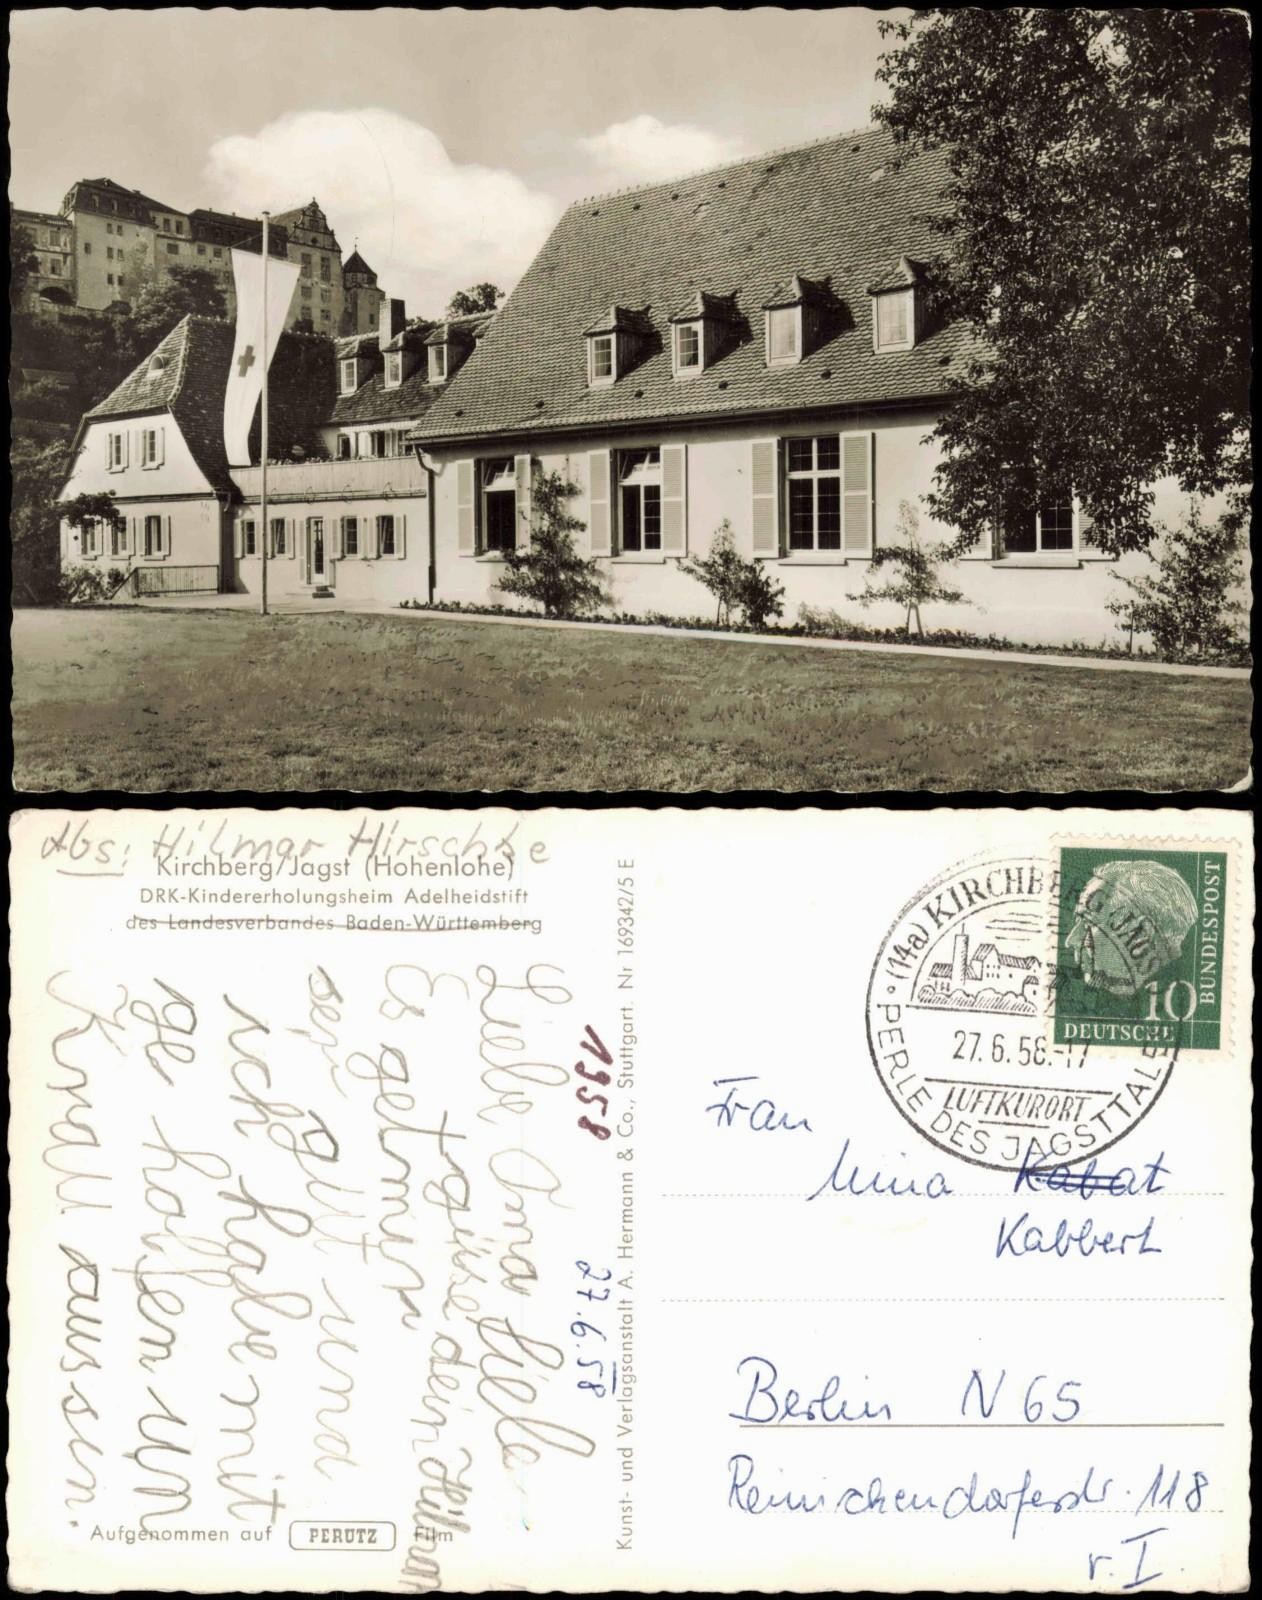 Abs: Hilmar Hirschke
Kirchberg/Jagst (Hohenlohe)
DRK-Kindererholungsheim Adelheidstift
des Landesverbandes Baden-Württemberg
Liebe Oma Hilo
Es get mir
ser gut und
ich habe mit
ge holfen um
Krall aussen.
Es grüse dein Hilmar
1958
27.6.58
Kunst- und Verlagsanstalt A. Hermann & Co., Stuttgart. Nr 169342/5 E
Aufgenommen auf PERUTZ Film
(14a) KIRCHBERG/JAGST
27.6.58.-17
LUFTKURORT
PERLE DES JAGSTTALES
10
DEUTSCHE
BUNDESPOST
Frau
Mina Kabat
Kabbert
Berlin N 65
Reinickendorferstr. 118
v. I.